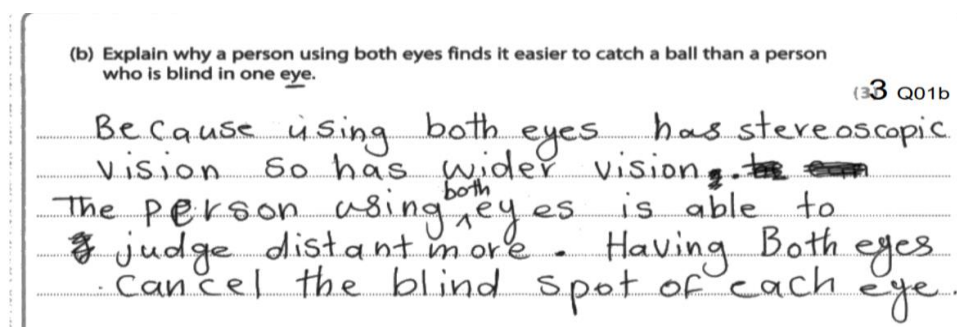 (b) Explain why a person using both eyes finds it easier to catch a ball than a person
who is blind in one eye.
(3 3 Q01b
Because using both eyes has stereoscopic
vision so has wider vision.
The person using both eyes is able to
judge distant more. Having Both eyes
cancel the blind spot of each eye.